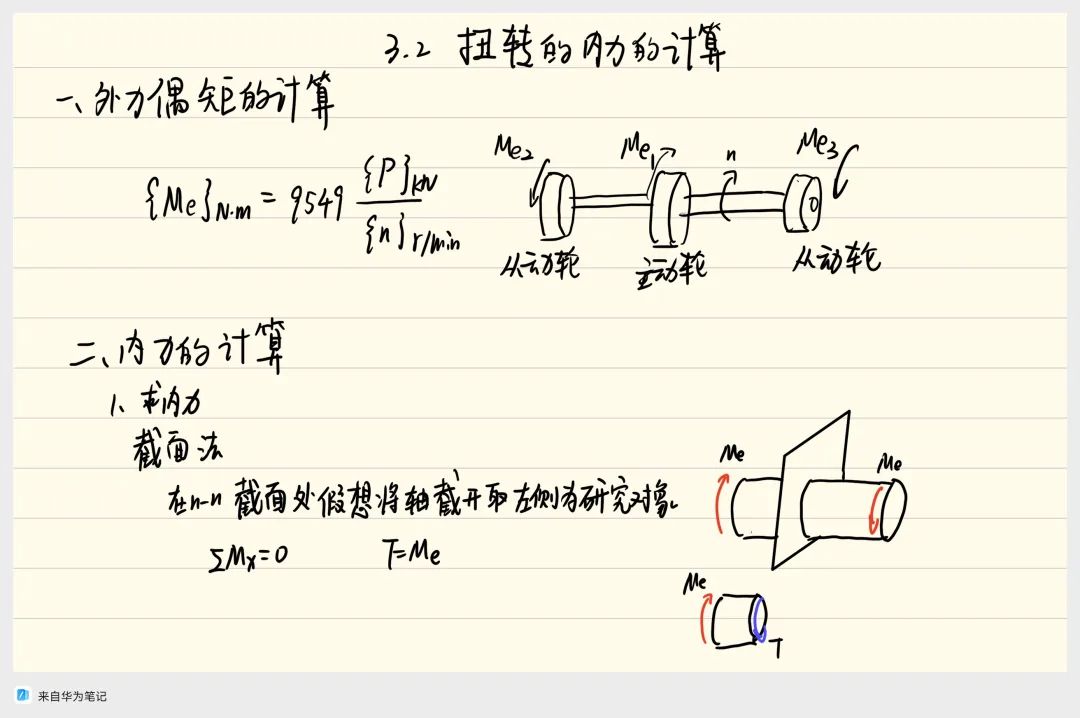 3.2 扭转的内力的计算
一、外力偶矩的计算
{Me}N·m = 9549 {P}kW / {n}r/min
Me2 Me1 n Me3
从动轮 主动轮 从动轮
二、内力的计算
1、求内力
截面法
在n-n 截面处假想将轴截开取左侧为研究对象。
ΣMx=0 T=Me
Me Me
Me
T
来自华为笔记